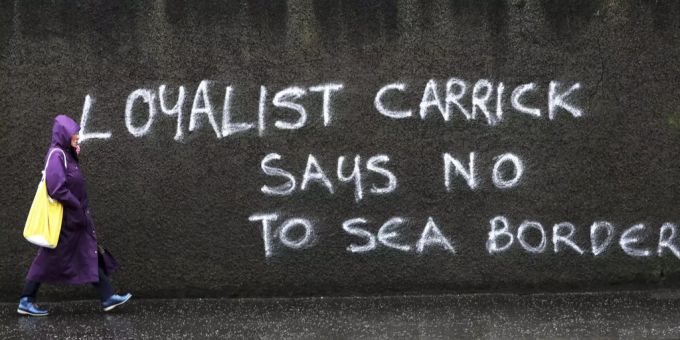 LOYALIST CARRICK
SAYS NO
TO SEA BORDER